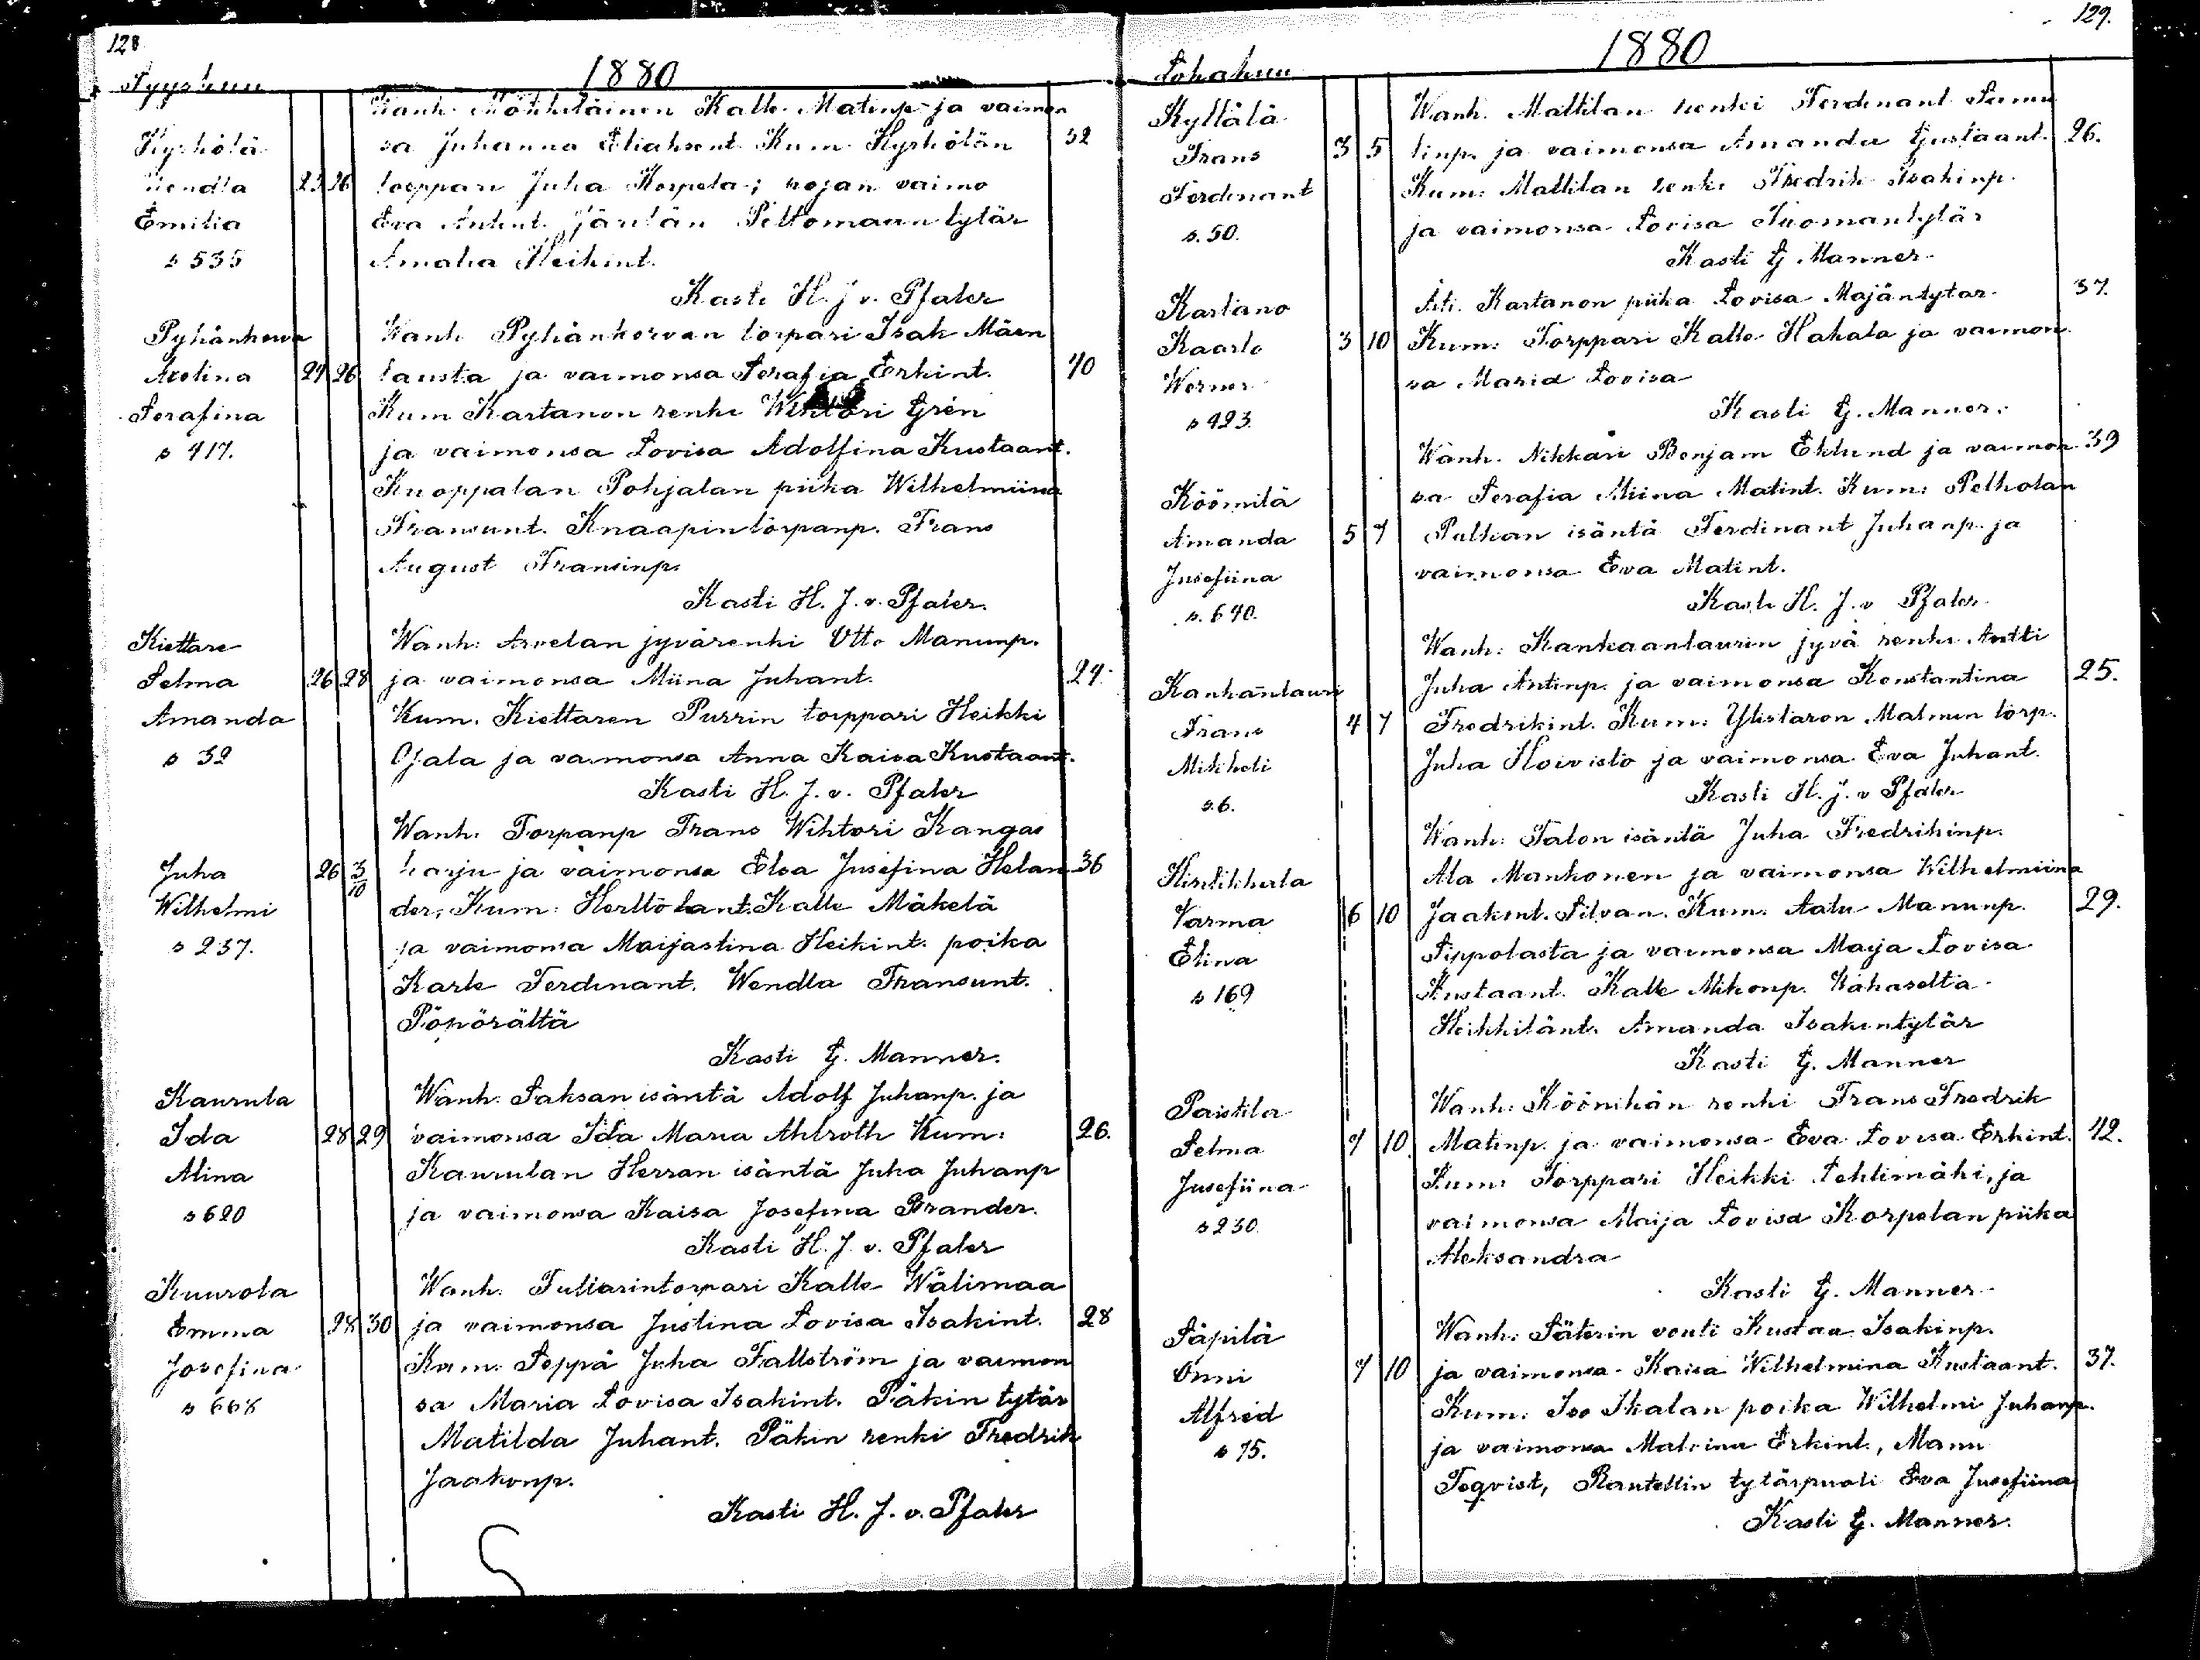 128
1880
Syyskuu
Wanh. Mökkeläinen Kalle Matinp. ja vaimon
Kyrkölä sa Juhanna Eliaksent. Kum. Kyrkölän 32
Wendla 23 26 torppari Juha Korpela; sojan vaimo
Emilia Eva Antint. Järilän Peltomaan tytär
s 535 Amalia Heikint.
Kasti H. J. v. Pfaler
Pyhänkorva Wanh. Pyhänkorvan torpari Isak Mäen
Avelina 24 26 lausta ja vaimonsa Serafia Erkint. 40
Serafina Kum Kartanon renki Wihtori Grén
s 417. ja vaimonsa Lovisa Adolfina Kustaant.
Kuoppalan Pohjalan piika Wilhelmiina
Fransunt. Knaapintorpanp. Frans
August Fransinp.
Kasti H. J. v. Pfaler.
Kiettare Wanh: Arvelan jyvärenki Otto Manunp.
Selma 26 28 ja vaimonsa Miina Juhant. 24.
Amanda Kum. Kiettaren Purrin torppari Heikki
s 32 Ojala ja vaimonsa Anna Kaisa Kustaant.
Kasti H. J. v. Pfaler
Wanh: Torpanp Frans Wihtori Kangas
Juha 26 3/10 harju ja vaimonsa Elsa Jusefina Helan 36
Wilhelmi der, Kum: Herttolant. Kalle Mäkelä
s 237. ja vaimonsa Maijastina Heikint. poika
Karle Ferdinant. Wendla Fransunt.
Pöpörältä
Kasti G. Manner.
Kaurula Wanh. Saksan isäntä Adolf Juhanp. ja
Ida 28 29 vaimonsa Ida Maria Ahlroth Kum: 26.
Alina Kaurulan Herran isäntä Juha Juhanp
s 620 ja vaimonsa Kaisa Josefina Brander.
Kasti H. J. v. Pfaler
Kuurola Wanh. Tuliarintorpari Kalle Wälimaa
Emma 28 30 ja vaimonsa Justina Lovisa Isakint. 28
Josefina Kum. Seppä Juha Fallström ja vaimon
s 668 sa Maria Lovisa Isakint. Päkin tytär
Matilda Juhant. Päkin renki Fredrik
Jaakonp.
Kasti H. J. v. Pfaler
129.
1880
Lokakuu
Kyllälä Wanh. Mattilan renki Ferdinant Samu
Frans 3 5 linp. ja vaimonsa Amanda Gustaant. 26.
Ferdinant Kum: Mattilan renki Fredrik Isakinp.
s. 50. ja vaimonsa Lovisa Tuomantytär
Kasti G. Manner.
Kartano Äiti. Kartanon piika Lovisa Majäntytar 37.
Kaarlo 3 10 Kum: Torppari Kalle Hakala ja vaimon
Werner sa Maria Lovisa
s 423. Kasti G. Manner.
Wanh. Nikkari Benjam Eklund ja vaimon 39
Köömilä sa Serafia Miina Matint. Kum: Pelholan
Amanda 5 7 Pulkan isäntä Ferdinant Juhanp. ja
Jusefiina vaimonsa Eva Matint.
s. 640. Kasti H. J. v Pfaler
Wanh: Kankaanlaurin jyvä renki Antti
Kankanlauri Juha Antinp. ja vaimonsa Konstantina 25.
Frans 4 7 Fredrikint. Kum: Ylistaron Malmen torp.
Mikkeli Juha Koivisto ja vaimonsa Eva Juhant.
s. 6. Kasti H. J. v Pfaler
Wanh: Talon isäntä Juha Fredrikinp.
Kirstikkala Ala Mankonen ja vaimonsa Wilhelmiina
Varma 6 10 Jaakint. Silvan. Kum. Aatu Manunp. 29.
Elina Sippolasta ja vaimonsa Maija Lovisa
s 169 Kustaant. Kalle Mikonp. Kahaselta
Heikkilänt. Amanda Isakintytär
Kasti G. Manner
Paistila Wanh: Köönikän renki Frans Fredrik
Selma 7 10. Matinp. ja vaimonsa Eva Lovisa Erkint. 42.
Jusefiina Kum: Torppari Heikki Lehtimäki, ja
s 230. vaimonsa Maija Lovisa Korpelan piika
Aleksandra
Kasti G. Manner
Säpilä Wanh: Säterin vouti Kustaa Isakinp.
Onni 7 10 ja vaimonsa Kaisa Wilhelmina Kustaant. 37.
Alfred Kum: Iso Ikalan poika Wilhelmi Juhanp.
s 75. ja vaimonsa Malviina Erkint., Manu
Teqvist, Rantellin tytärpuoli Eva Jusefiina
Kasti G. Manner.